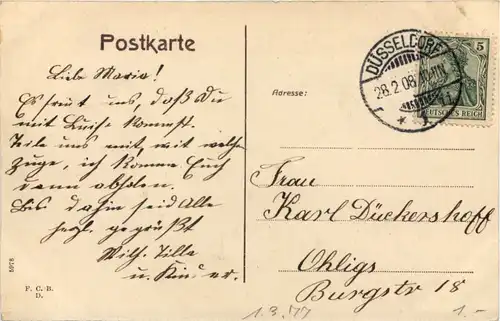 Postkarte
Liebe Maria!
Es freut uns, daß Du
mit Luise kommst.
Teile uns mit, mit welchem
Zuge, ich komme Euch
dann abholen.
Bis dahin seid Alle
herzl. gegrüßt
Wilh. Tille
u. Kinder.
5978
F. C. B.
D.
Adresse:
DÜSSELDORF
28.2.08
1 j
5
DEUTSCHES REICH
Frau
Karl Dückershoff
Ohligs
Burgstr 18
1.3.77
1.-